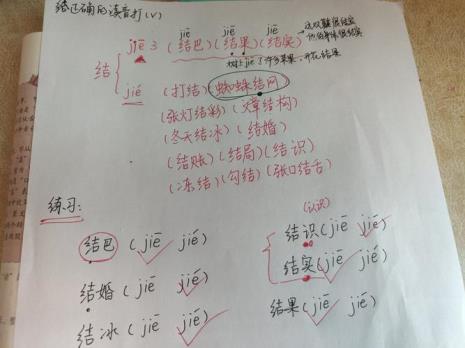 给正确的读音打(√)
jiē jiē jiē
jiē 3 (结巴)(结果)(结实)
树上jiē了许多苹果,开花结果
结
jié (打结)(蜘蛛结网)
(张灯结彩)(结构)
(冬天结冰)(结婚)
(结账)(结局)(结识)
(冻结)(勾结)(张口结舌)
练习:
(认识)
结巴(jiē jié) 结识(jiē jié)
结婚(jiē jié) 结实(jiē jié)
结冰(jiē jié) 结果(jiē jié)